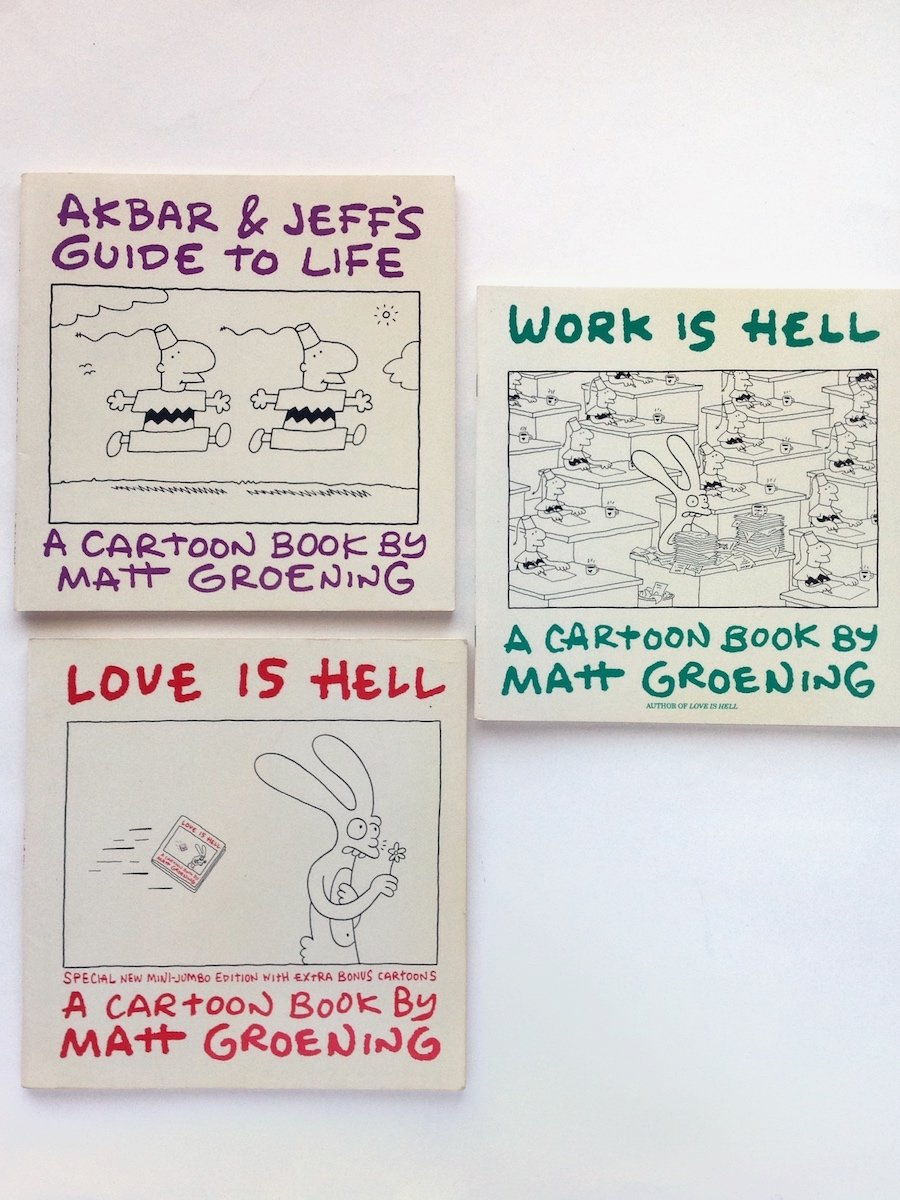 AKBAR & JEFF'S
GUIDE TO LIFE
A CARTOON BOOK BY
MATT GROENING
WORK IS HELL
A CARTOON BOOK BY
MATT GROENING
AUTHOR OF LOVE IS HELL
LOVE IS HELL
LOVE IS HELL
A CARTOON BOOK BY
MATT GROENING
SPECIAL NEW MINI-JUMBO EDITION WITH EXTRA BONUS CARTOONS
A CARTOON BOOK BY
MATT GROENING